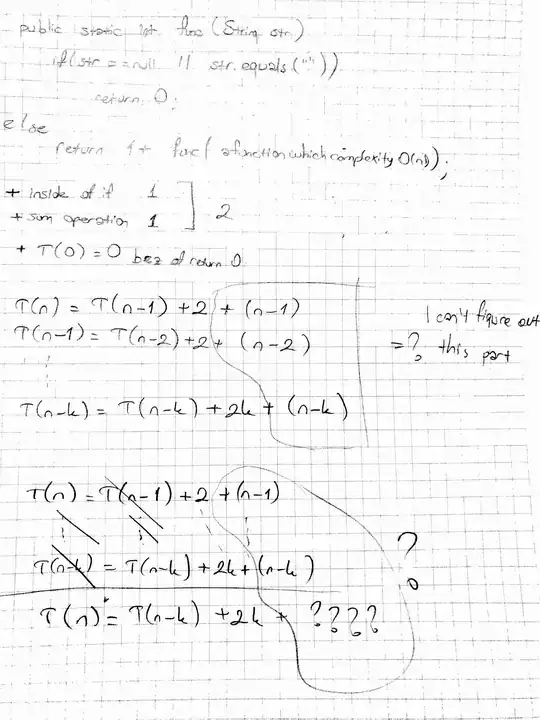 public static int func (String str)
if(str == null || str.equals(""))
return 0;
else
return 1+ func( afunction which complexity O(n));
+ inside of if 1
+ sum operation 1
2
+ T(0) = 0 bez of return 0
T(n) = T(n-1) + 2 + (n-1)
T(n-1) = T(n-2) + 2 + (n-2)
I can't figure out
=? this part
T(n-k) = T(n-k) + 2k + (n-k)
T(n) = T(n-1) + 2 + (n-1)
?
T(n-k) = T(n-k) + 2k + (n-k)
T(n) = T(n-k) + 2k + ????